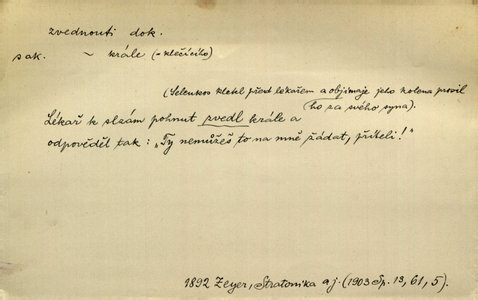 zvednouti dok.
sak. ~ krále (-klečícího)
(Seleukos klekl před lékařem a objímaje jeho kolena prosil
ho za svého syna).
Lékař k slzám pohnut zvedl krále a
odpověděl tak: „Ty nemůžeš to na mně žádat, příteli!"
1892 Zeyer, Stratonika aj. (1903 Sp. 13, 61, 5).